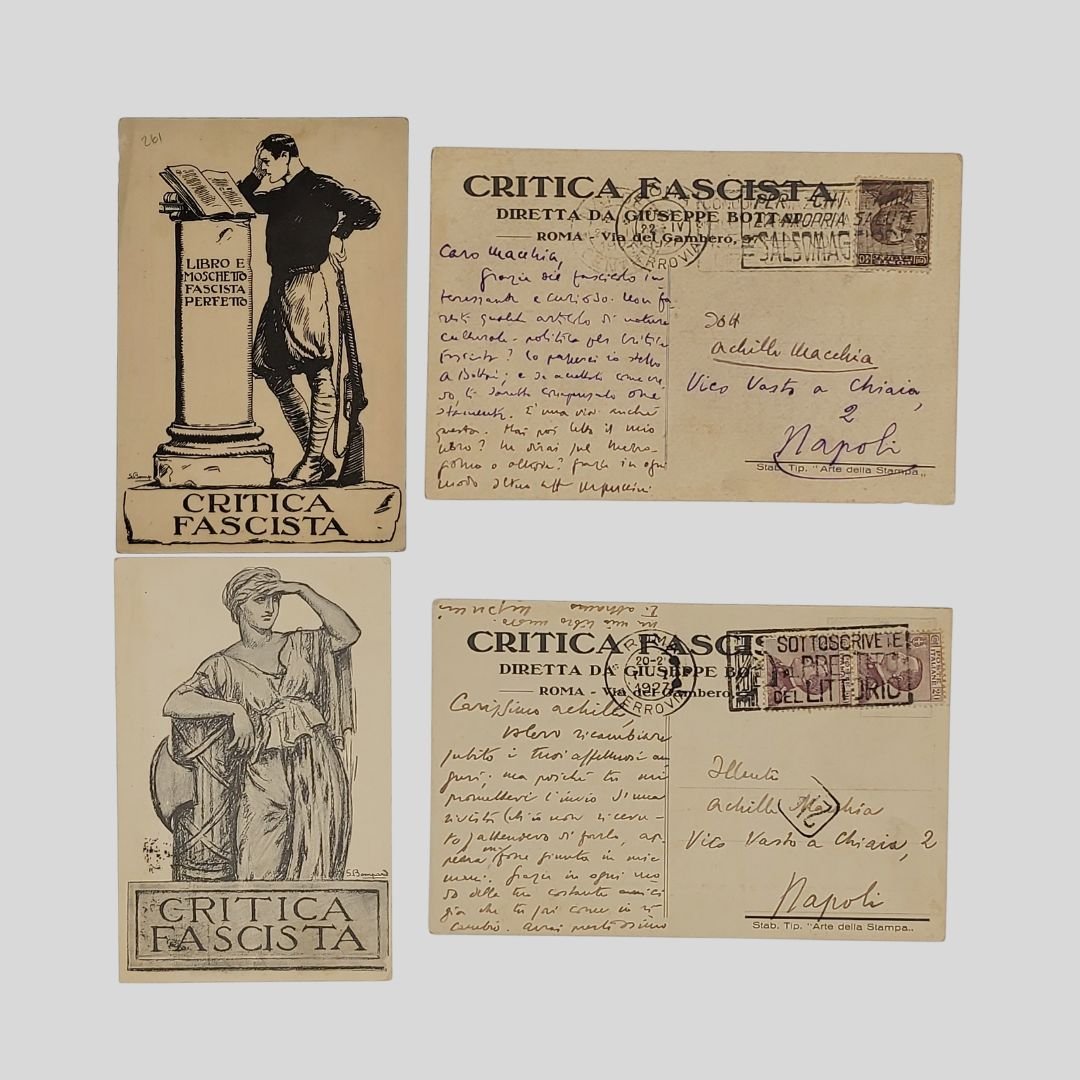 261
LIBRO E
MOSCHETTO
FASCISTA
PERFETTO
CRITICA
FASCISTA
CRITICA FASCISTA
DIRETTA DA GIUSEPPE BOTTAI
ROMA - Via del Gambero,
PER CHI
LA PROPRIA SALUTE
SALSOMAG
22 IV
FERROVIA
Caro Macchia,
grazie del fascicolo in
teressante e curioso. Non fa
resti qualche articolo di natura
culturale-politica per Critica
fascista? Lo passerei io stesso
a Bottai; e se accettato come cre
do, ti sarebbe compensato one
stamente. È una via anche
questa. Hai poi letto il mio
libro? Me dirai sul Mezzo-
giorno o allegria? in ogni
modo
Dott
Achille Macchia
Vico Vasto a Chiaia,
2
Napoli
Stab. Tip. "Arte della Stampa„
S. Bompard
CRITICA
FASCISTA
mio libro
Ti abbraccio
CRITICA FASCIS
DIRETTA DA GIUSEPPE BO
ROMA - Via del Gambero,
ROMA
20-2
1927
FERROVIA
SOTTOSCRIVETE
AL PRESTITO
DEL LITTORIO
Carissimo Achille
Volevo ricambiare
subito i tuoi affettuosi au
guri; ma poiché tu mi
promettevi l'invio d'una
rivista (ch'io non ricevu-
to) attendevo di farlo, ap
pena fosse giunta in mie
mani. Grazie in ogni mo
do della tua costante amici
zia che tu sai come io ri
cambio. Avrai prestissimo
Achille Macchia
Vico Vasto a Chiaia, 2
Napoli
Stab. Tip. "Arte della Stampa„